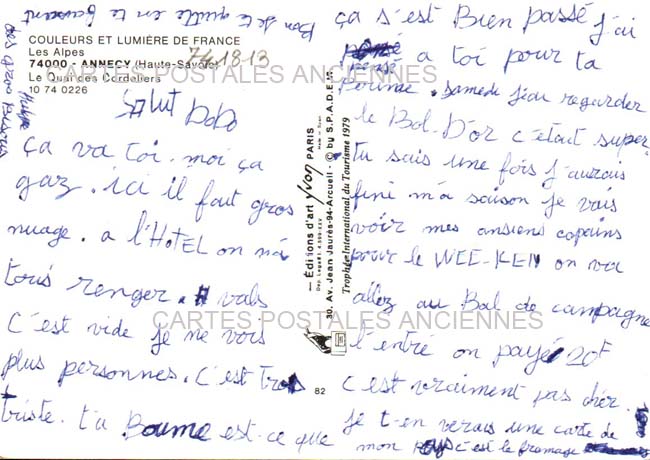 COULEURS ET LUMIÈRE DE FRANCE
Les Alpes
741813
74000 - ANNECY (Haute-Savoie)
Le Quai des Cordeliers
10 74 0226
CARTES POSTALES ANCIENNES
Salut DoDo
ça va toi. moi ça
gaz. ici il fait gros
nuage. a l'HoTEL on m'a
tous renger.
C'est vide je ne vois
plus personnes. C'est trop
triste. t'a Boume est-ce que
ça s'est Bien passé j'ai
pensé a toi pour ta
Boume. samedi j'ai regarder
le Bol-D'or c'étaut super.
tu sais une fois j'aurais
fini m'a saison je vais
voir mes ansiens copains
pour le WEE-KEN on va
allez au Bal de campagne
l'entre on payé 20F
c'est vraiment pas cher.
je t-en verais une carte de
mon pays c'est le fromage
Bon je te quitte en te faisant
des gros bisous
— Éditions d'art yvon PARIS
30, Av. Jean Jaurès-94-Arcueil - © by S.P.A.D.E.M.
Trophée International du Tourisme 1979
CARTES POSTALES ANCIENNES
82